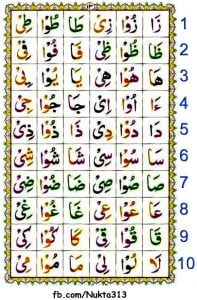 زَا زُوْا زِىْ طَا طُوْا طِىْ 1
ظَا ظُوْا ظِىْ فَا فُوْا فِىْ 2
هَا هُوْا هِىْ يَا يُوْا يِىْ 3
ءَا اُوْا اِىْ جَا جُوْا جِىْ 4
دَا دُوْا دِىْ ذَا ذُوْا ذِىْ 5
سَا سُوْا سِىْ شَا شُوْا شِىْ 6
صَا صُوْا صِىْ ضَا ضُوْا ضِىْ 7
عَا عُوْا عِىْ غَا غُوْا غِىْ 8
قَا قُوْا قِىْ كَا كُوْا كِىْ 9
لَا لُوْا لِىْ مَا مُوْا مِىْ 10
fb.com/Nukta313